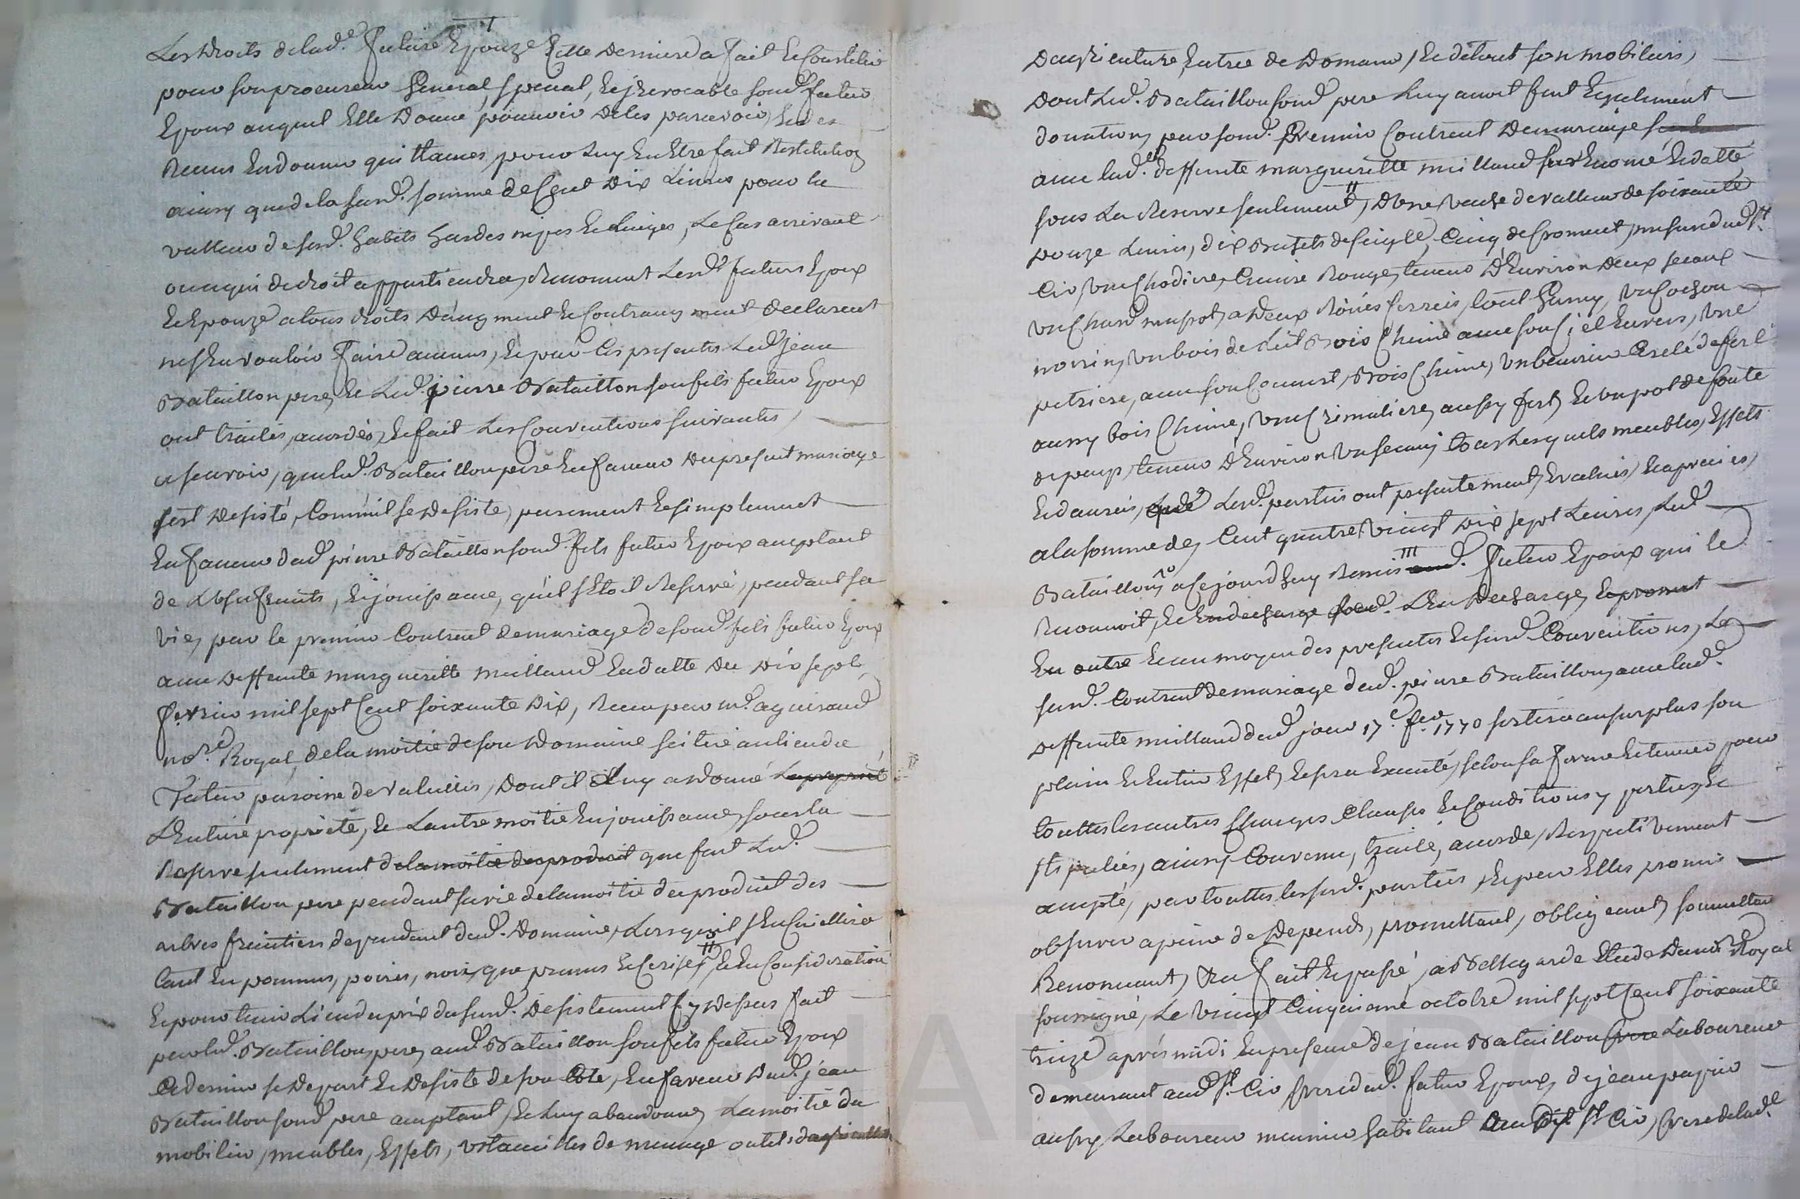 Les droits de lad.e future Epouze Cette derniere a fait Et Constitué
pour son procureur General, special, Et jrrevocable sond. futur
Epoux auquel Elle donne pouvoir de les parcevoir, du
Reçeu En donner quittances, pour Luy En Etre fait Restitution
ainsy que de la susd. somme de Cent dix Livres pour la
valleur desesd. habits hardes nipes Et Linges, Le Cas arrivant
ou a qui de droit appartiendra, Renoncent Lesd. futurs Epoux
Et Epouze a tous droits d'augment Et Contraugment declarent
n'En vouloir faire aucuns, Et par Ces presentes Led. jean
Bataillon pere, Et Led. pierre Bataillon son fils futur Epoux
ont traités, accordés, Et fait Les Conventions suivantes,
a scavoir, que led. Bataillon pere En faveur du present mariage
s'est desisté, Comm'il se desiste, purement Et simplement
En faveur dud. pierre Bataillon sond. fils futur Epoux acceptant
de L'usufruits, Et jouissance, qu'il s'Etoit Reservé, pendant sa
vie, par le premier Contract de mariage de sond. fils futur Epoux
avec deffunte margueritte meilland En datte du dix sept
fevrier mil sept Cent soixante dix, Receu par m.e aguiraud
no.re Royal, de la moitié de son domaine scitué au lieu de
paroisse de Valeilles, dont il Luy a donné
L'Entiere propriété, Et L'autre moitié En jouissance, sous la
Reserve seulement de la moitié du produit que fait Led.
Bataillon pere pendant sa vie de la moitié du produit des
arbres fruitiers dependant dud. Domaine, Lorsqu'il s'En Cuillira
tant En pommes, poires, noix, que prunes Et Cerises, II Et En Consideration
Et pour tenir Lieu du prix du susd. desistement Cy dessus fait
par led. Bataillon pere, aud. Bataillon son fils futur Epoux
Ce dernier se depart Et desiste de son Coté, En faveur dud. jean
Bataillon sond. pere acceptant, Et Luy abandonne, La moitié du
mobilier, meubles, Effets, ustancilles de menage outils d'agriculture
D'agriculture, Entrée de domaine, Et de tout son mobiliers,
dont Led. Bataillon sond. pere Luy avoit fait Egalement
donation, par sond. Premier Contract de mariage
avec lad. deffunte marguerite meilland sus Enoncé Et datté
sous La Reserve seulement, II d'une vache de valleur de soixante
douze Livres, dix Bichets de seigle, Cinq de froment, mesure dud. St.
Cir, une Chodiere, Cuivre Rouge, teneur d'Environ deux seaux
un Char a deux Roües ferrées, tout garny, un Cochon
noirin, un bois de Lit Bois Chene avec son Ciel Envers, une
petriere, avec son Couvert, Bois Chene,
aussy bois Chene, une Crimaliere, aussy fert, Et un pot de fonte
teneur d'Environ un seau, tous Lesquels meubles, Effets
Et danrées, que Lesd. parties ont presentement Evalués, Et apreciés,
a la somme de, Cent quatre vingt dix sept Livres, Led.
Bataillon, a Cejourd'huy Remis III aud. futur Epoux qui le
Reconnoit, Et L'En decharge, Et promet
En outre Et au moyen des presentes Et susd. Conventions, Le
susd. Contract de mariage dud. pierre Bataillon, avec lad.
deffunte meilland dud. jour 17.e fev. 1770 sortira au surplus son
plain Et Entier Effet, Et sera Executé, selon sa forme Et teneur pour
touttes les autres Charges Clauses Et Conditions y portées Et
stipulées, ainsy Convenu, traité, accordé, Respectivement
accepté, par touttes les susd. parties, Et par Elles promis
observer a peine de Depends, promettant, obligeant, soumettant
Renonceant, fait Et passé, a Bellegarde Etude du no.re Royal
soussigné, Le vingt Cinquieme octobre mil sept Cent soixante
treize après midi En presence de jean Bataillon Laboureur
demeurant aud. St. Cir frere dud. futur Epoux, de jean
aussy Laboureur meunier habitant Aud. St. Cir, frere de lad.e